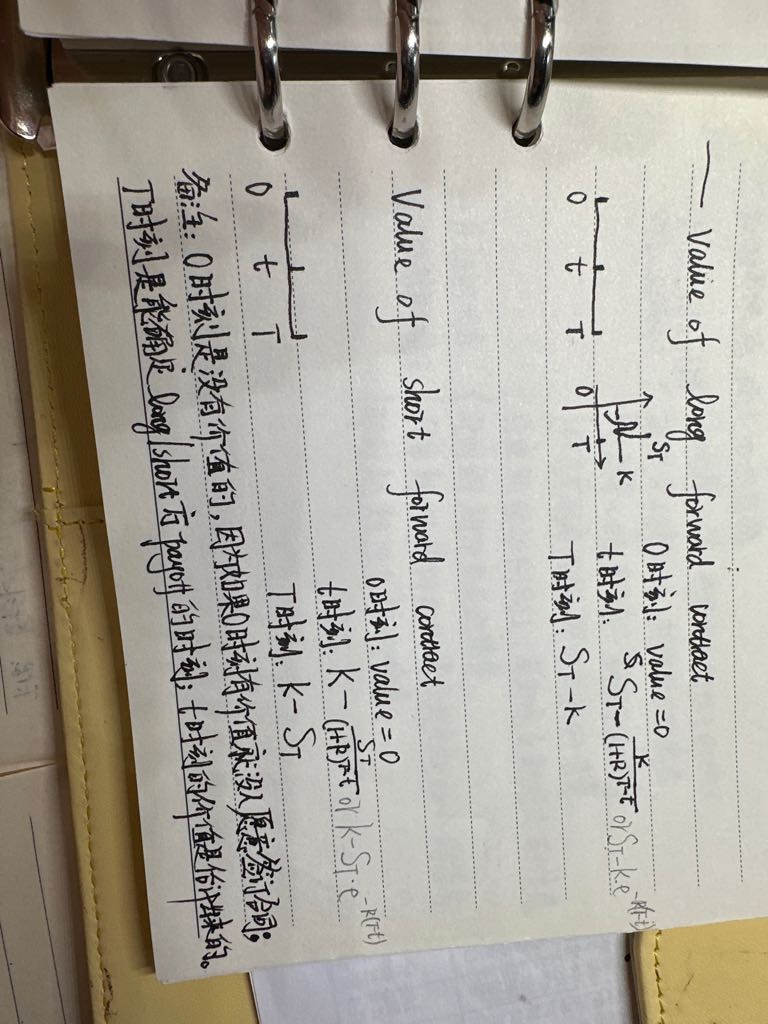 一 Value of long forward contract
0时刻: value=0
O t T
O T K S_T
t时刻: S_T - K/(1+R)^{T-t} or S_T-k·e^{-R(T-t)}
T时刻: S_T-k
Value of short forward contract
0时刻: value=0
t时刻: K - S_T/(1+R)^{T-t} or k-S_T·e^{-R(T-t)}
O t T
T时刻: K-S_T
备注: 0时刻是没有价值的,因为如果0时刻有价值就没人愿意签订合同;
T时刻是能确定 long/short 方 payoff 的时刻; t时刻的价值是估计出来的。